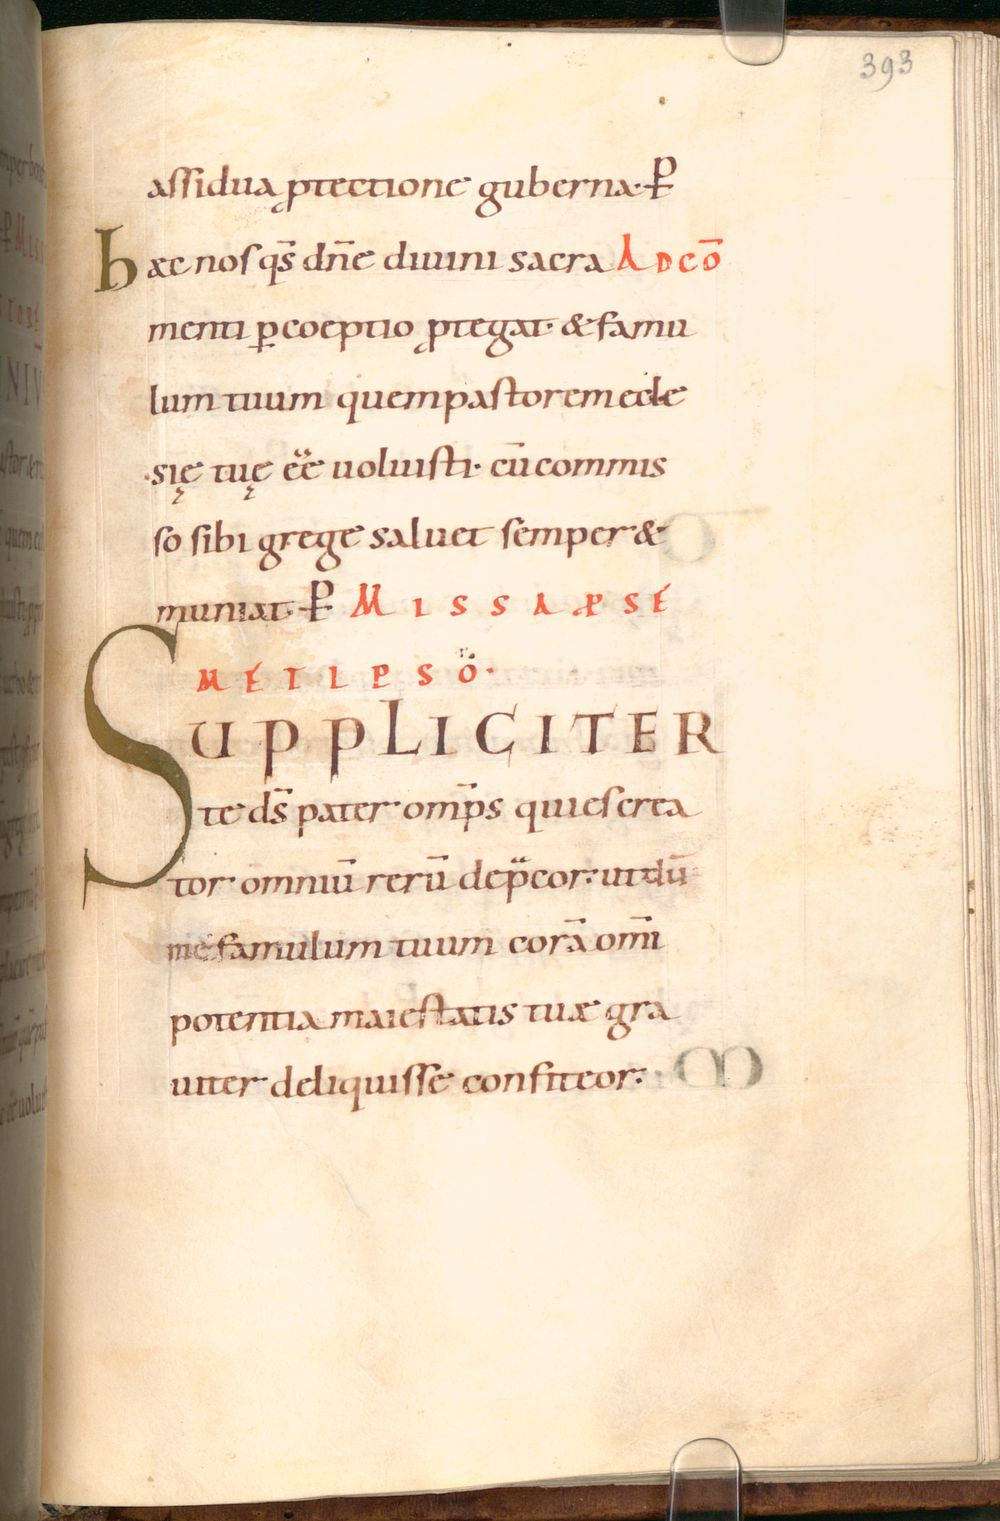 393
assidua ꝓtectione guberna. ꝑ
hæc nos qs̄ dn̄e diuini sacra AD CŌ
menti ꝑceptio ꝓtegat. & famu
lum tuum quem pastorem eccle
się tuę eē uoluisti. cū commis
so sibi grege saluet semper &
muniat. ꝑ MISSA PSE
METIPSO.
SUPPLICITER
te ds̄ pater omp̄s qui es crea
tor omniū rerū dep̄cor. ut dū
me famulum tuum corā omī
potentia maiestatis tuæ gra
uiter deliquisse confiteor.